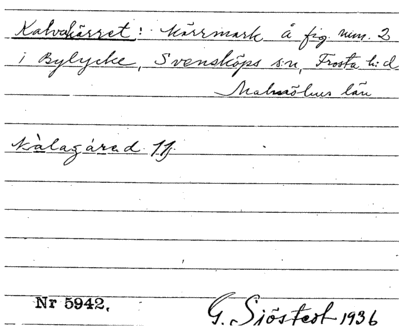 Kalvakärret: kärrmark å fig num. 2
i Bylycke, Svensköps sn, Frosta hd
Malmöhus län
kàlagárad 11
Nr 5942.
G. Sjöstedt 1936